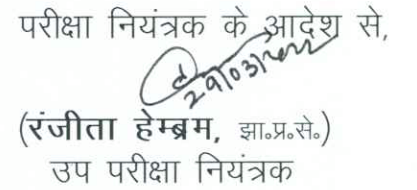 परीक्षा नियंत्रक के आदेश से,
29/03/2022
(रंजीता हेम्ब्रम, झा॰प्र॰से॰)
उप परीक्षा नियंत्रक